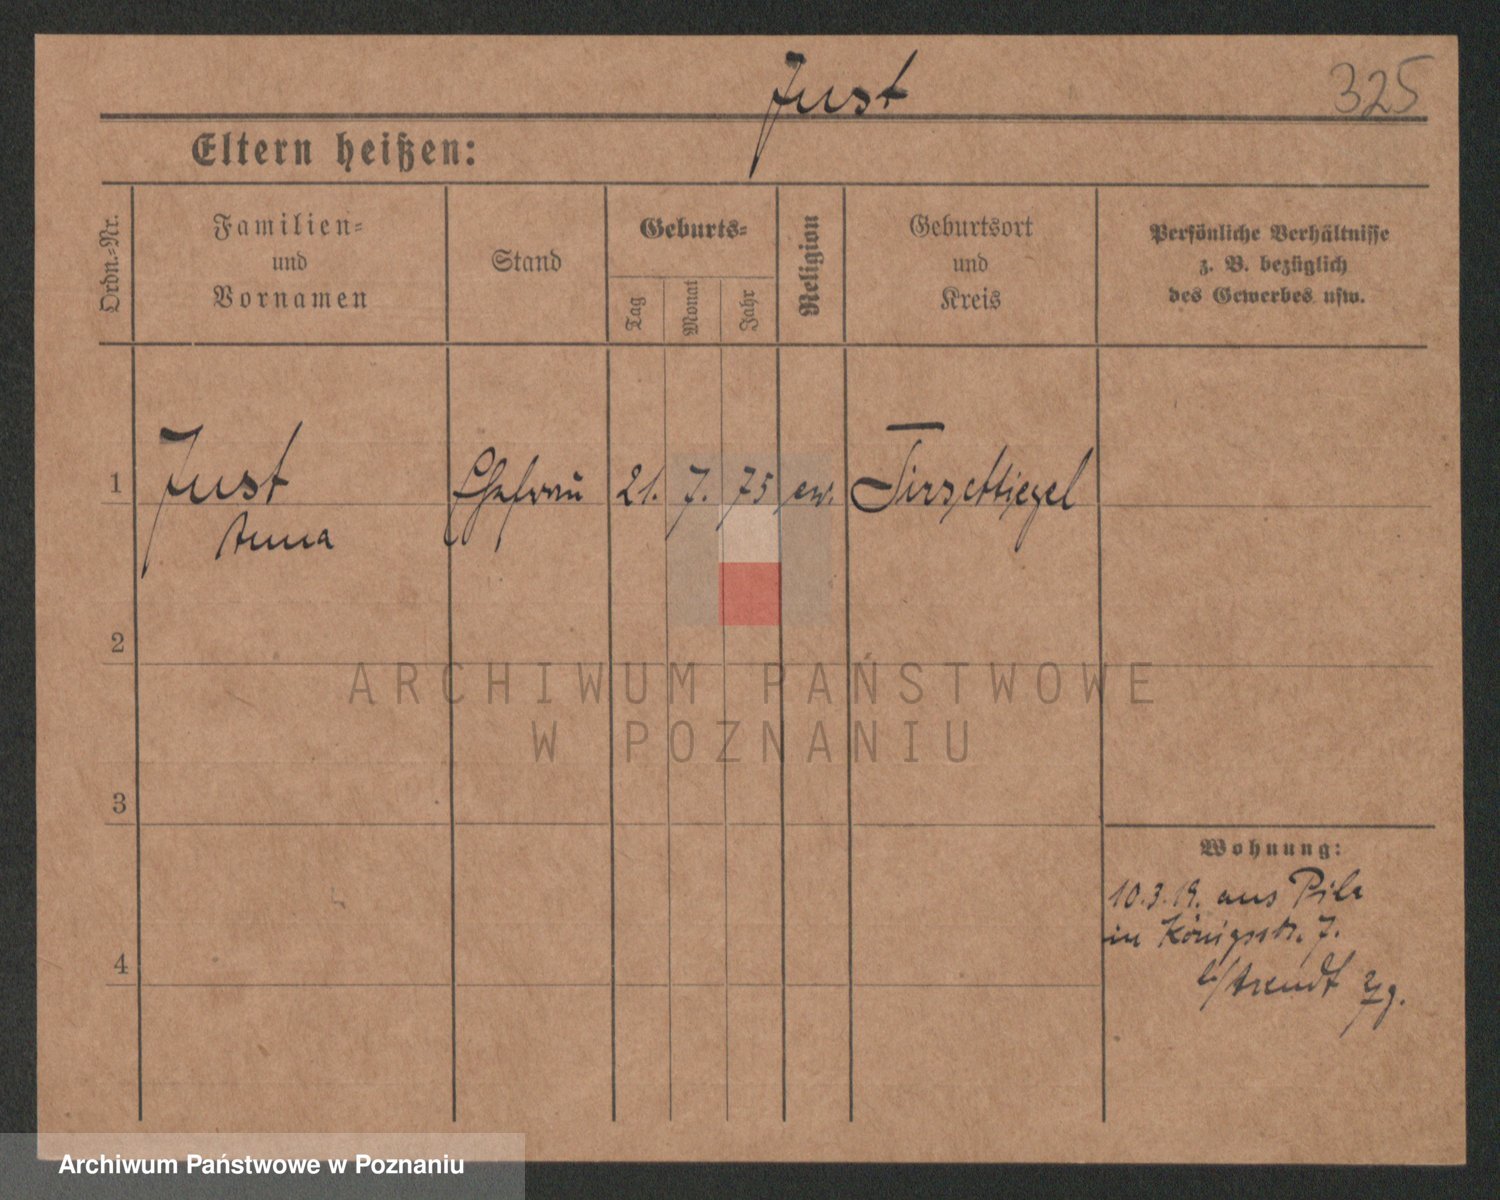 Just
325
Eltern heißen:
Ordn.-Nr.
Familien-
und
Vornamen
Stand
Geburts-
Tag
Monat
Jahr
Religion
Geburtsort
und
Kreis
Persönliche Verhältnisse
z. B. bezüglich
des Gewerbes usw.
1
Just
Anna
Ehefrau
21.
7.
75
ev.
Tirschtiegel
2
ARCHIWUM PAŃSTWOWE
W POZNANIU
3
Wohnung:
10.3.19. aus Pila
in Königsstr. 7.
b/Arendt
4
Archiwum Państwowe w Poznaniu